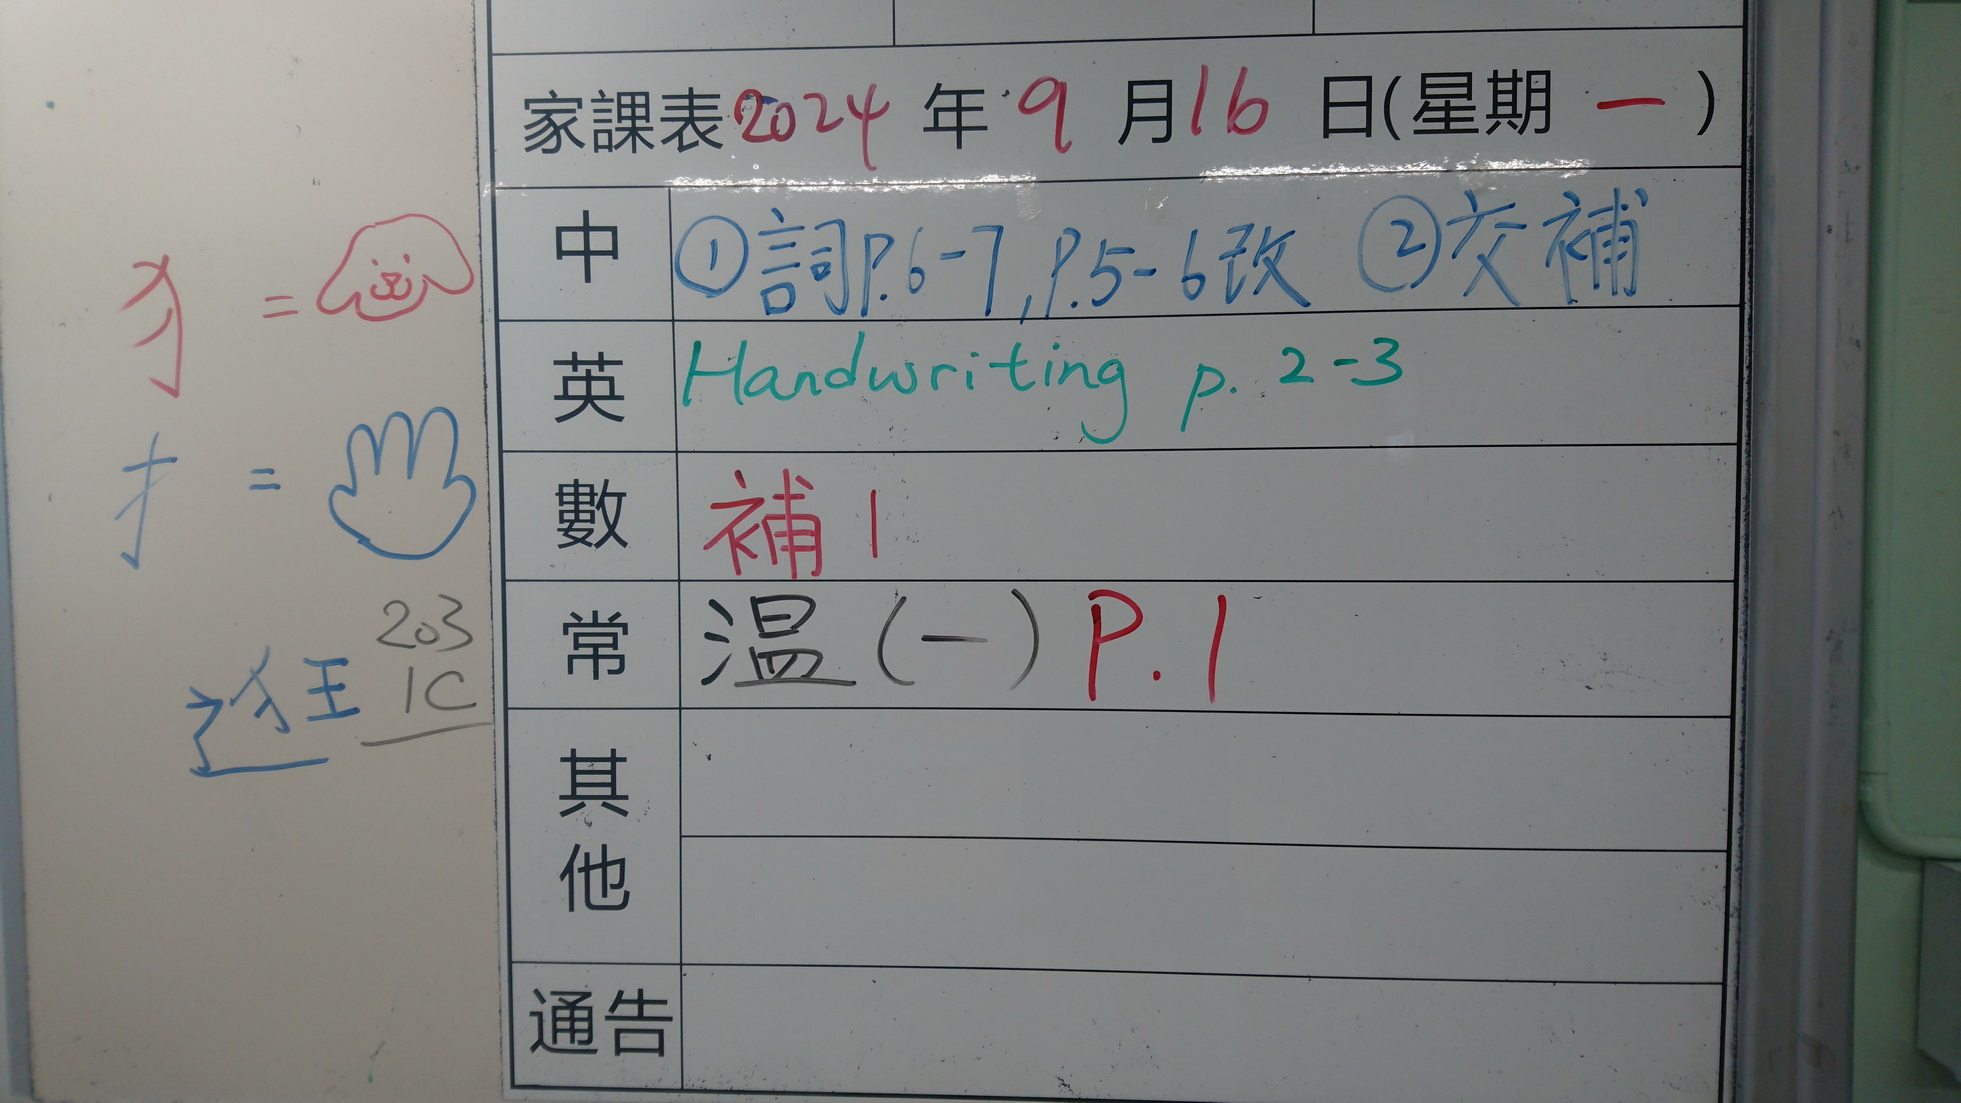 家課表2024年9月16日(星期一)
中 ①詞P.6-7,P.5-6改 ②交補
英 Handwriting p. 2-3
數 補1
常 温(一) P.1
其他
通告
犭 =
扌 =
203
1C
逛